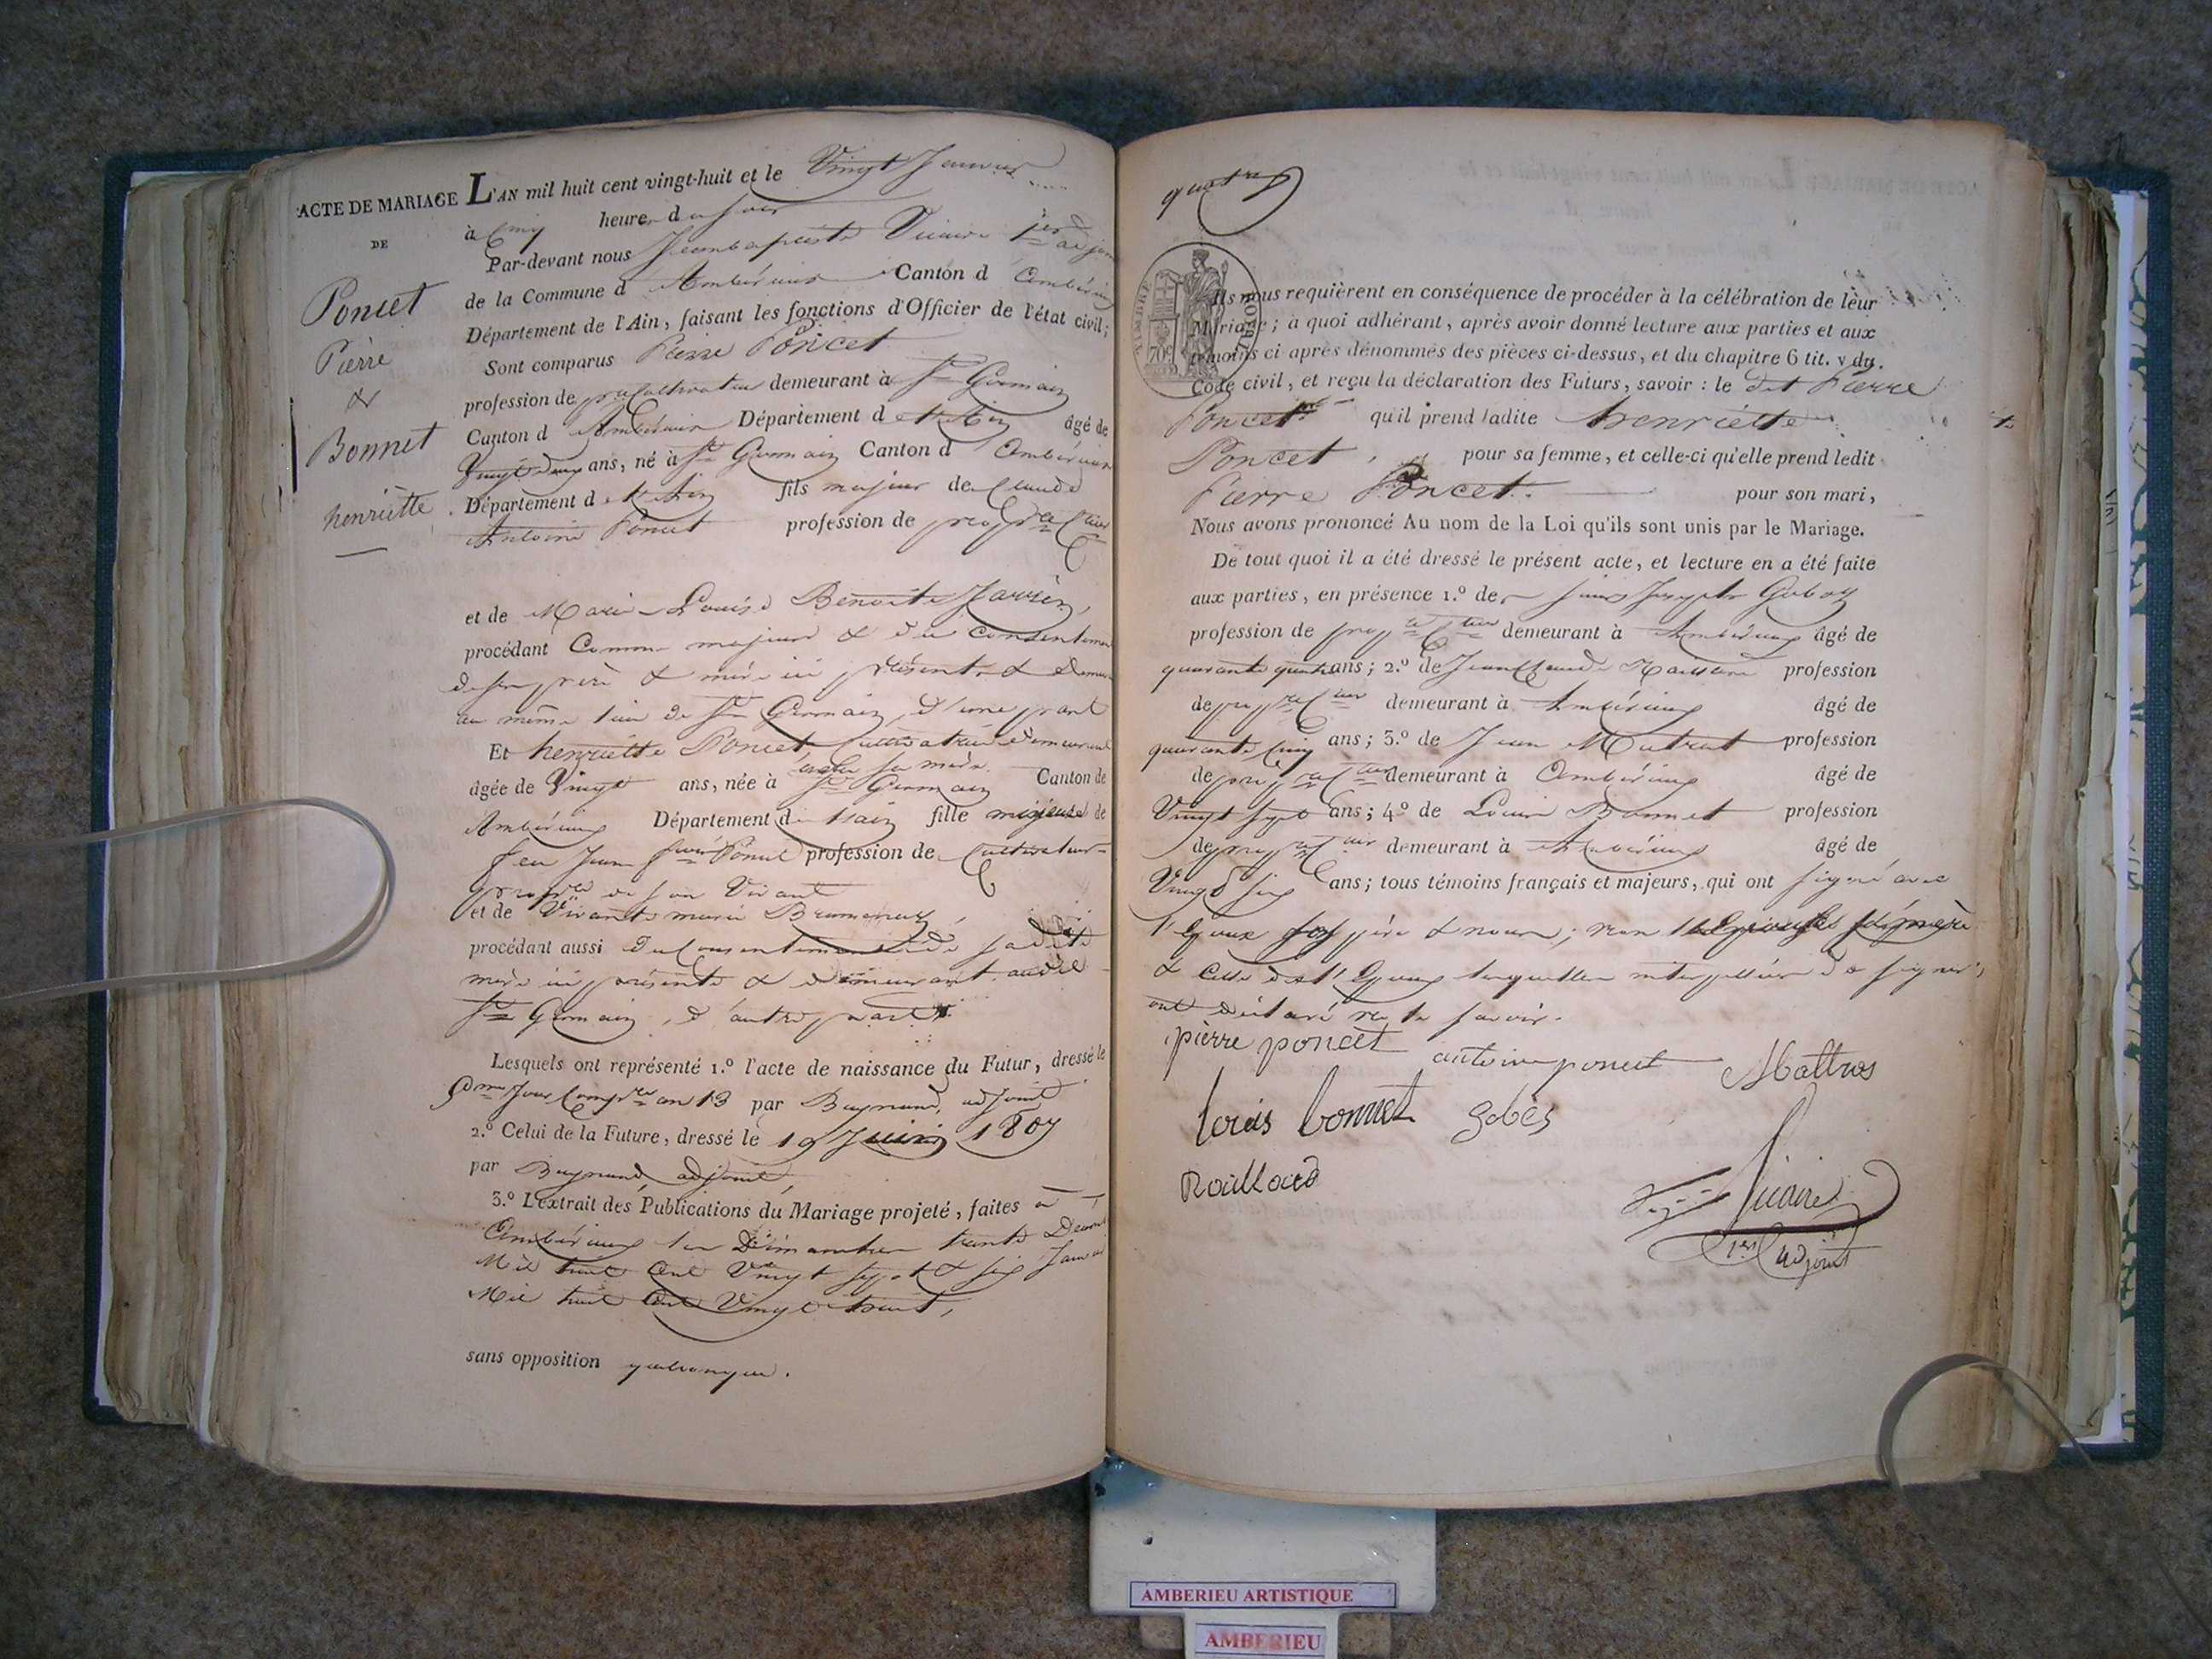 ACTE DE MARIAGE
DE
Poncet
Pierre
&
Bonnet
henriette
L'AN mil huit cent vingt-huit et le Vingt Janvier
à Cinq heures du soir
Par-devant nous Jeanbaptiste Vicaire 1er adjoint
de la Commune d'Ambérieux Canton d'Ambérieux
Département de l'Ain, faisant les fonctions d'Officier de l'état civil;
Sont comparus Pierre Poncet
profession de cultivateur demeurant à St Germain
Canton d'Ambérieux Département de l'Ain âgé de
Vingt deux ans, né à St Germain Canton d'Ambérieux
Département de l'Ain fils majeur de Claude
Antoine Poncet profession de propre Cteur
et de Marie Louise Benoite Jarrin,
procédant Comme majeur & du Consentement
de ses père & mère ici présents & demeurant
au même lieu de St Germain, d'une part
Et henriette Poncet, Cultivatrice demeurant
avec sa mère
âgée de Vingt ans, née à St Germain Canton de
Ambérieux Département de l'Ain fille majeure de
feu Jean Poncet profession de Cultivateur
propre de son Vivant
et de Vivante marie
procédant aussi du Consentement de sadite
mère ici présente & demeurant audit
St Germain, d'autre part
Lesquels ont représenté 1.º l'acte de naissance du Futur, dressé le
5me Jour Compre an 13 par adjoint
2.º Celui de la Future, dressé le 19 Juin 1807
par adjoint,
3.º L'extrait des Publications du Mariage projeté, faites à
Ambérieux les Dimanches trente Décembre
Mil huit Cent Vingt sept & six Janvier
Mil huit Cent Vingt huit,
sans opposition quelconque.
quatre
TIMBRE ROYAL
Ils nous requièrent en conséquence de procéder à la célébration de leur
Mariage; à quoi adhérant, après avoir donné lecture aux parties et aux
témoins ci après dénommés des pièces ci-dessus, et du chapitre 6 tit. v du
Code civil, et reçu la déclaration des Futurs, savoir : le dit Pierre
Poncet qu'il prend ladite henriette
Poncet pour sa femme, et celle-ci qu'elle prend ledit
Pierre Poncet. pour son mari,
Nous avons prononcé Au nom de la Loi qu'ils sont unis par le Mariage.
De tout quoi il a été dressé le présent acte, et lecture en a été faite
aux parties, en présence 1.º de Joseph
profession de propre Cteur demeurant à Ambérieux âgé de
quarante quatre ans; 2.º de Jean Claude profession
de propre Cteur demeurant à Ambérieux âgé de
quarante Cinq ans; 3.º de Jean profession
de propre Cteur demeurant à Ambérieux âgé de
Vingt sept ans; 4.º de Louis Bonnet profession
de propre Cteur demeurant à Ambérieux âgé de
Vingt six ans; tous témoins français et majeurs, qui ont signé avec
l'Epoux son père & nous; non l'Epouse sa mère
& Celle de l'Epoux lesquelles interpellées de signer,
ont déclaré ne le savoir.
pierre poncet antoine poncet Mattros
louis bonnet gobés
Vicaire
1er adjoint
AMBERIEU ARTISTIQUE
AMBERIEU